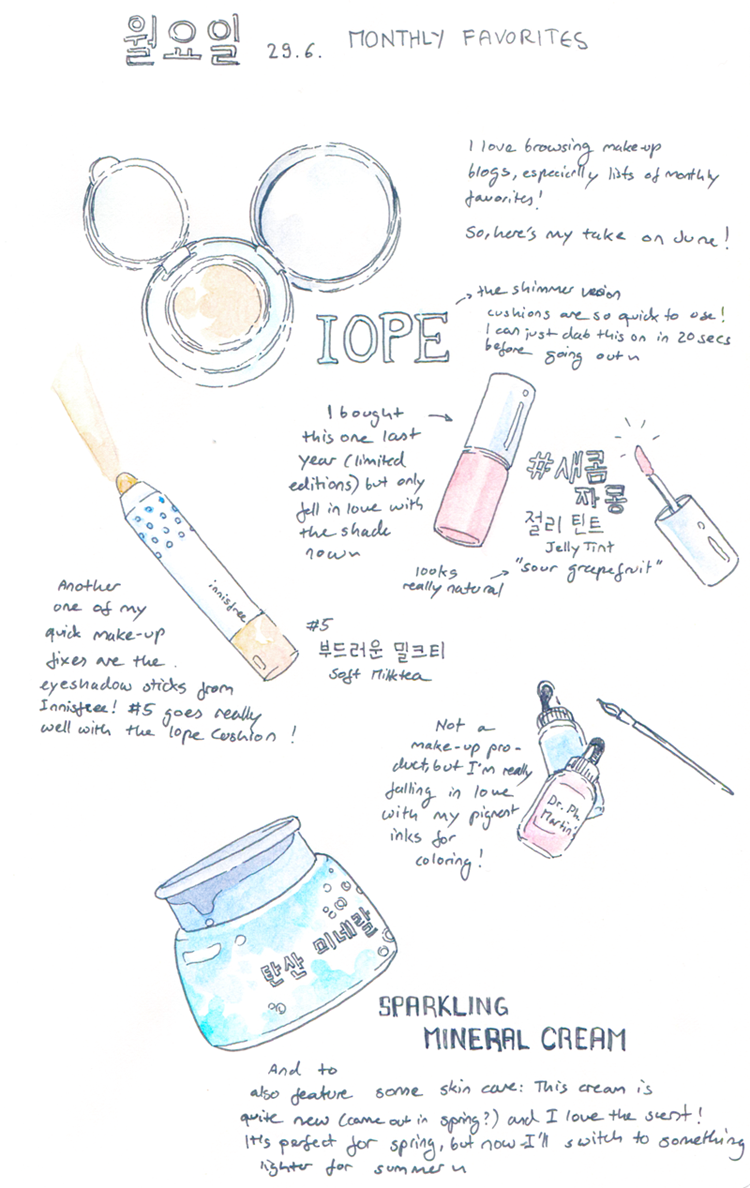 월요일 29.6. MONTHLY FAVORITES
I love browsing make-up
blogs, especially lists of monthly
favorites!
So, here's my take on June!
the shimmer version
cushions are so quick to use!
I can just dab this on in 20 secs
before going out
IOPE
I bought
this one last
year (limited
editions) but only
fell in love with
the shade
now
#새콤
자몽
젤리 틴트
Jelly Tint
"sour grapefruit"
looks
really natural
innisfree
Another
one of my
quick make-up
fixes are the
eyeshadow sticks from
Innisfree! #5 goes really
well with the Iope Cushion!
#5
부드러운 밀크티
Soft Milktea
Not a
make-up pro-
duct, but I'm really
falling in love
with my pigment
inks for
coloring!
Dr. Ph.
Martin's
탄산 미네랄
SPARKLING
MINERAL CREAM
And to
also feature some skin care: This cream is
quite new (came out in spring?) and I love the scent!
It's perfect for spring, but now I'll switch to something
lighter for summer